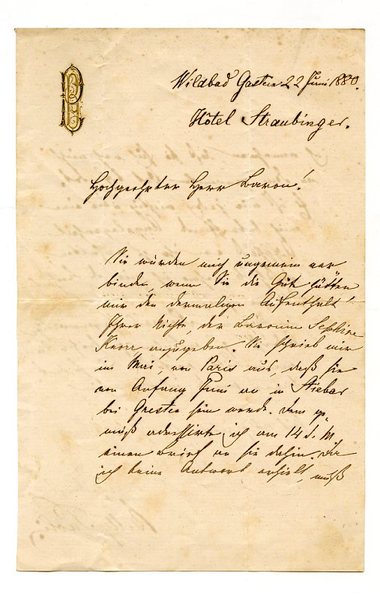 Wildbad Gastein 22 Juni 1880.
Hôtel Straubinger.
Hochgeehrter Herr Baron!
Sie würden mich ungemein ver
binden, wenn Sie die Güte hätten
mir den dermaligen Aufenthalt
Ihrer Nichte, der Baronin
anzugeben. Sie schrieb mir
im Mai, von Paris aus, daß sie
von Anfang Juni an in Stiebar
bei Gresten sein werde. Dem ge
mäß adressirte ich am 14 d. M
einen Brief an sie dahin. Da
ich keine Antwort erhielt, muß